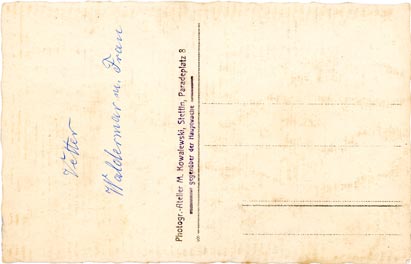 Vetter
Waldermar u. Frau
Photogr.-Atelier M. Kowalewski, Stettin, Paradeplatz 8
gegenüber der Hauptwache